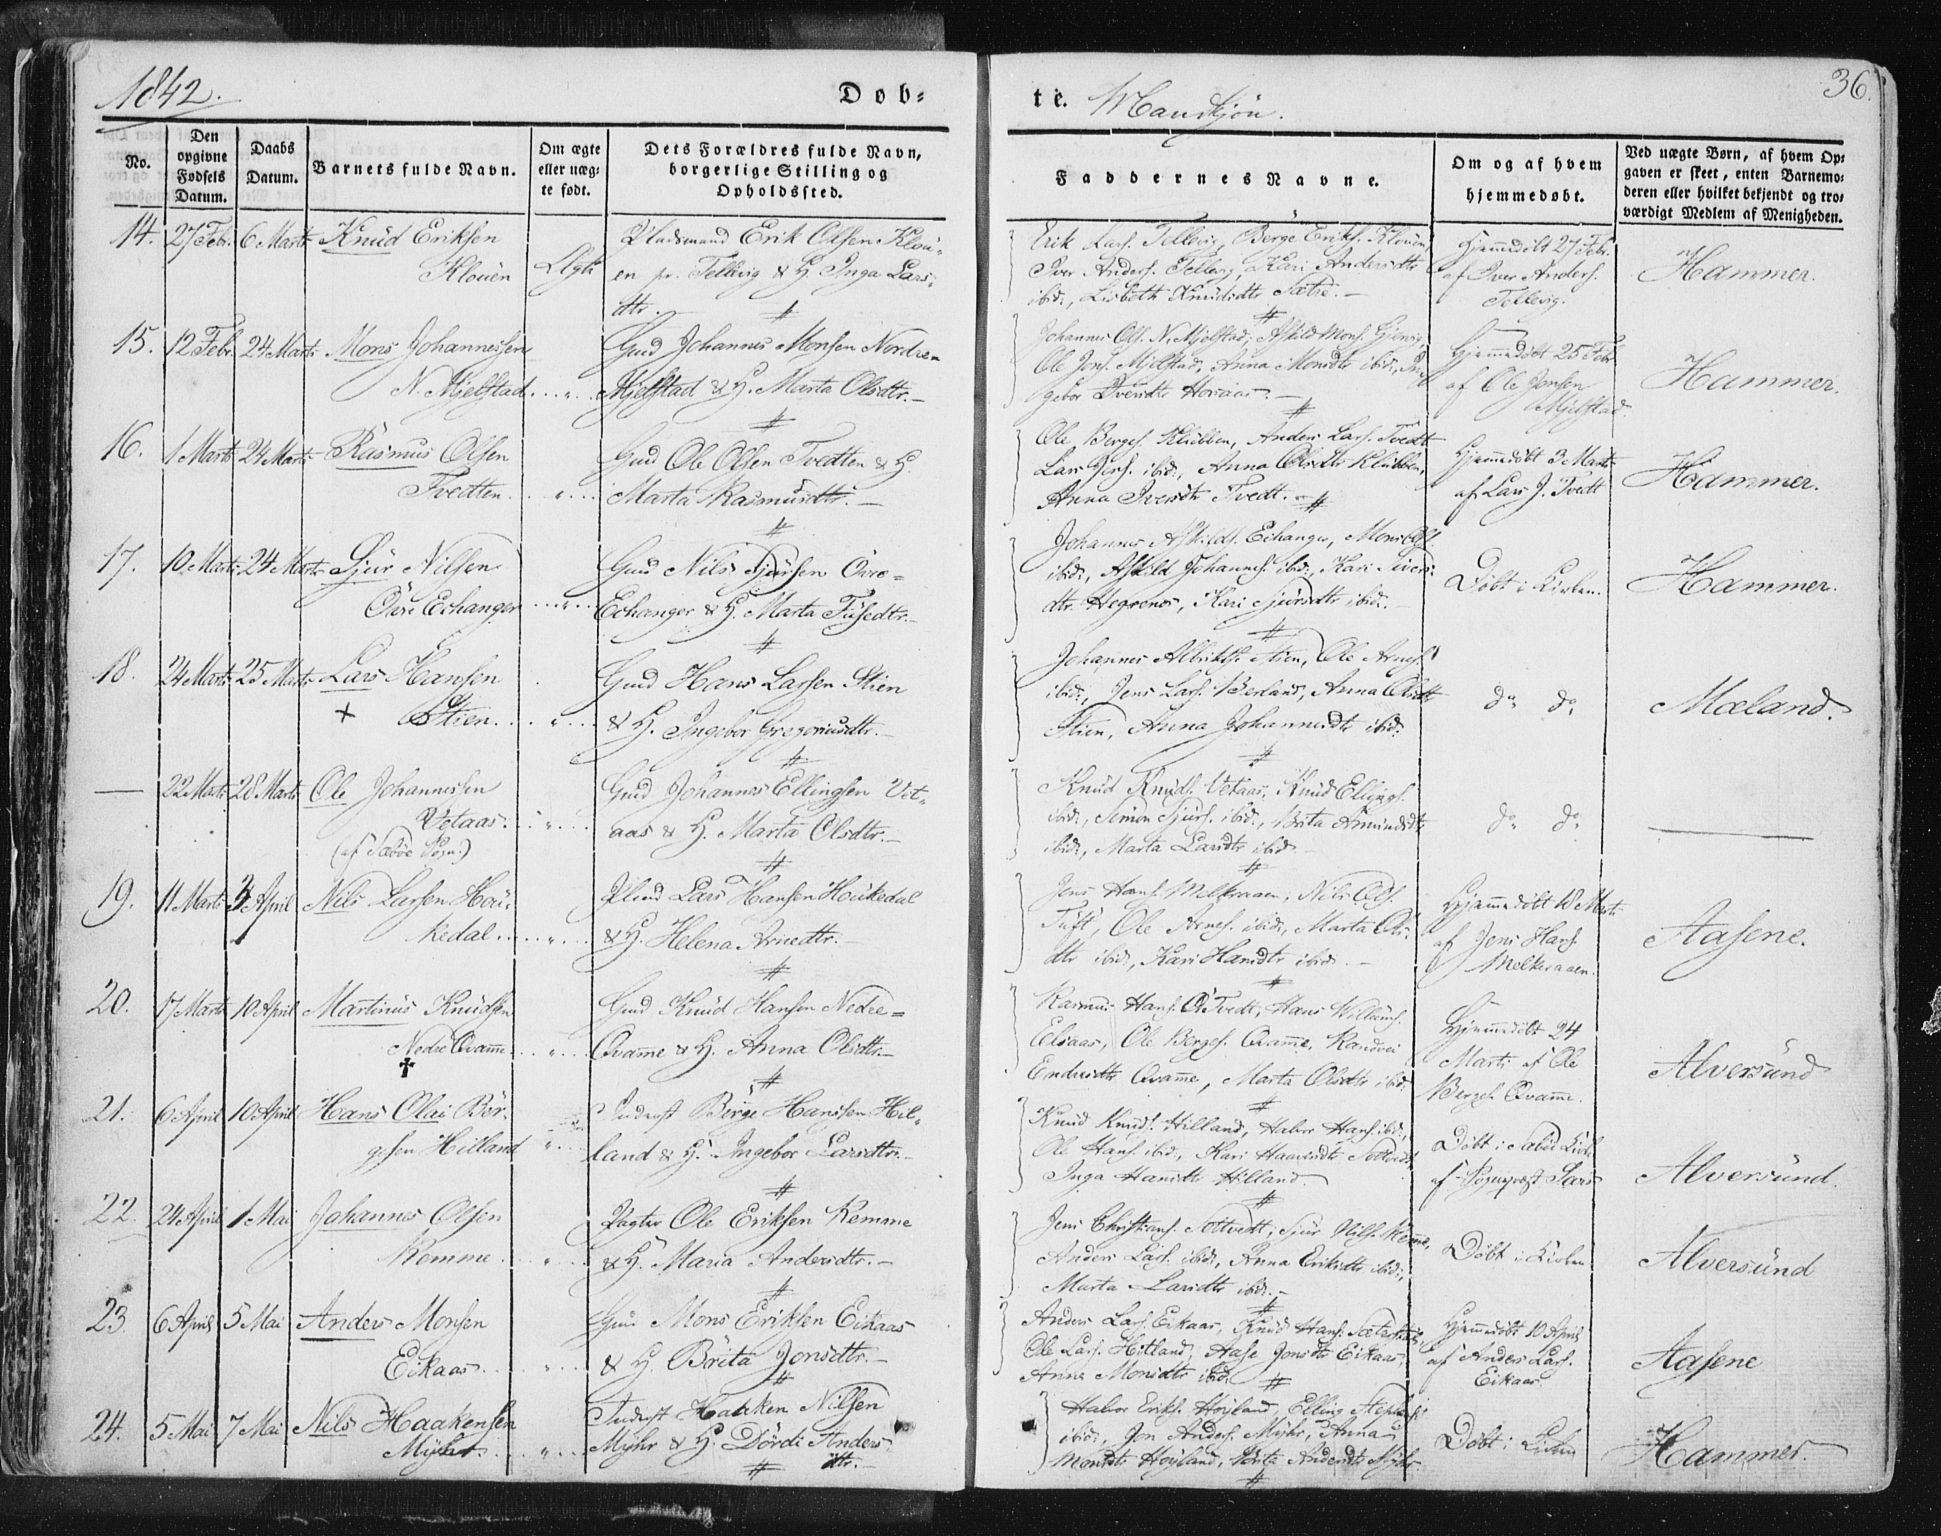 1842.
Dob-
te. Mandkjön.
36.
No.
Den opgivne Fødsels Datum.
Daabs Datum.
Barnets fulde Navn.
Om ægte eller uægte født.
Dets Forældres fulde Navn, borgerlige Stilling og Opholdssted.
Faddernes Navne.
Om og af hvem hjemmedøbt.
Ved uægte Børn, af hvem Opgaven er skeet, enten Barnemoderen eller hvilket bekjendt og troværdigt Medlem af Menigheden.
14. 27 Feb. 6 Marts Knud Eriksen
Klouen
Ægte
Pladsmand Erik Olsen Klou-
en pr. Tellevig & H. Inga Lars-
dtr.
Erik Lars. Tellevig, Børge Eriks. Klouen,
Iver Anders. Tellevig, Kari Andersdtr
ibid., Lisbeth Knudsdtr Sætre.
Hjemmedöbt 27 Febr.
af Iver Anders.
Tellevig.
Hammer.
15. 12 Febr. 24 Marts Mons Johannessen
N. Mjelstad
Gmd Johannes Monsen Nordre-
Mjelstad & H. Marta Olsdtr.
Johannes Ols. N. Mjelstad, Askild Mons. Gjervig
Ole Jons. Mjelstad, Anna Monsdtr ibid., In-
gebor Iversdtr
Hjemmedöbt 25 Febr
af Ole Jonsen
Mjelstad.
Hammer.
16. 1 Marts 24 Marts Rasmus Olsen
Tvedten
Gmd Ole Olsen Tvedten & H.
Marta Rasmusdtr.
Ole Berges. Klubben, Anders Lars. Tvedt
Lars Jens. ibid., Anna Olsdtr Klubben,
Anna Iversdtr Tvedt.
Hjemmedöbt 3 Marts
af Lars J. Tvedt
Hammer.
17. 10 Marts 24 Marts Sjur Nilsen
Övre Echanger
Gmd Nils Sjursen Övre-
Echanger & H. Marta Fusedtr.
Johannes Askilds. Echanger, Mons Ols.
ibid., Askild Johannes. ibid., Kari Ivers-
dtr Hegrenes, Kari Sjursdtr ibid.
Döbt i Kirken.
Hammer.
18. 24 Marts 25 Marts Lars Hansen
+ Stien
Gmd Hans Larsen Stien
& H. Ingebor Gregoriusdtr.
Johannes Albrikts. Stien, Ole Arnes.
ibid., Jens Lars. Berland, Anna Olsdtr
Stien, Anna Johannesdtr ibid.
do do
Mæland.
— 22 Marts 28 Marts Ole Johannessen
Vetaas
(af Sæbøe Sogn)
Gmd Johannes Ellingsen Vet-
aas & H. Marta Olsdtr.
Knud Knuds. Vetaas, Knud Ellings.
ibid., Simon Sjurs. ibid., Brita Amundsdtr
ibid., Marta Larsdtr ibid.
do do
19. 11 Marts 3 April Nils Larsen Hou-
kedal
Lars Hansen Houkedal
& H. Helena Arnedtr.
Jens Hans. Melkeraaen, Nils Ols.
Tuft, Ole Arnes. ibid., Marta Ols-
dtr ibid., Kari Hansdtr ibid.
Hjemmedöbt 18 Marts
af Jens Hans.
Melkeraaen.
Aasene.
20. 17 Marts 10 April Martinus Knudsen
Nedre Qvamme
✝
Gmd Knud Hansen Nedre-
Qvamme & H. Anna Olsdtr.
Rasmus Hans. Ö Tvedt, Hans Willums.
Eisaas, Ole Berges. Qvamme, Randvei
Endresdtr Qvamme, Marta Olsdtr ibid.
Hjemmedöbt 24
Marts af Ole
Berges. Qvamme.
Alversund
21. 6 April 10 April Hans Olai Bör-
gesen Hilland
Inderst Börge Hansen Hil-
land & H. Ingebor Larsdtr.
Knud Knuds. Hilland, Halvor Hans. ibid.,
Ole Hans. ibid., Kari Haaversdtr
Inga Hansdtr Hilland.
Döbt i Sæböe Kirke
af Sognepræst
Alversund.
22. 24 April 1 Mai Johannes Olsen
Remme
Pagter Ole Eriksen Remme
& H. Maria Andersdtr.
Jens Christians. Soltvedt, Sjur Nils. Remme,
Anders Lars. ibid., Anna Eriksdtr ibid.,
Marta Larsdtr ibid.
Döbt i Kirken
Alversund
23. 6 April 5 Mai Anders Monsen
Eikaas
Gmd Mons Eriksen Eikaas
& H. Brita Jonsdtr.
Anders Lars. Eikaas, Knud Hans.
Ole Lars. Hitland, Aase Jonsdtr Eikaas,
Anna Monsdtr ibid.
Hjemmedöbt 10 April
af Anders Lars.
Eikaas
Aasene
24. 5 Mai 7 Mai Nils Haakensen
Myhr
Inderst Haaken Nilsen
Myhr & H. Dördi Anders-
dtr.
Halvor Eriks. Höyland, Elling
ibid., Jon Anders. Myhr, Anna
Monsdtr Höyland, Brita Andersdtr Myhr.
Döbt i Kirken
Hammer.